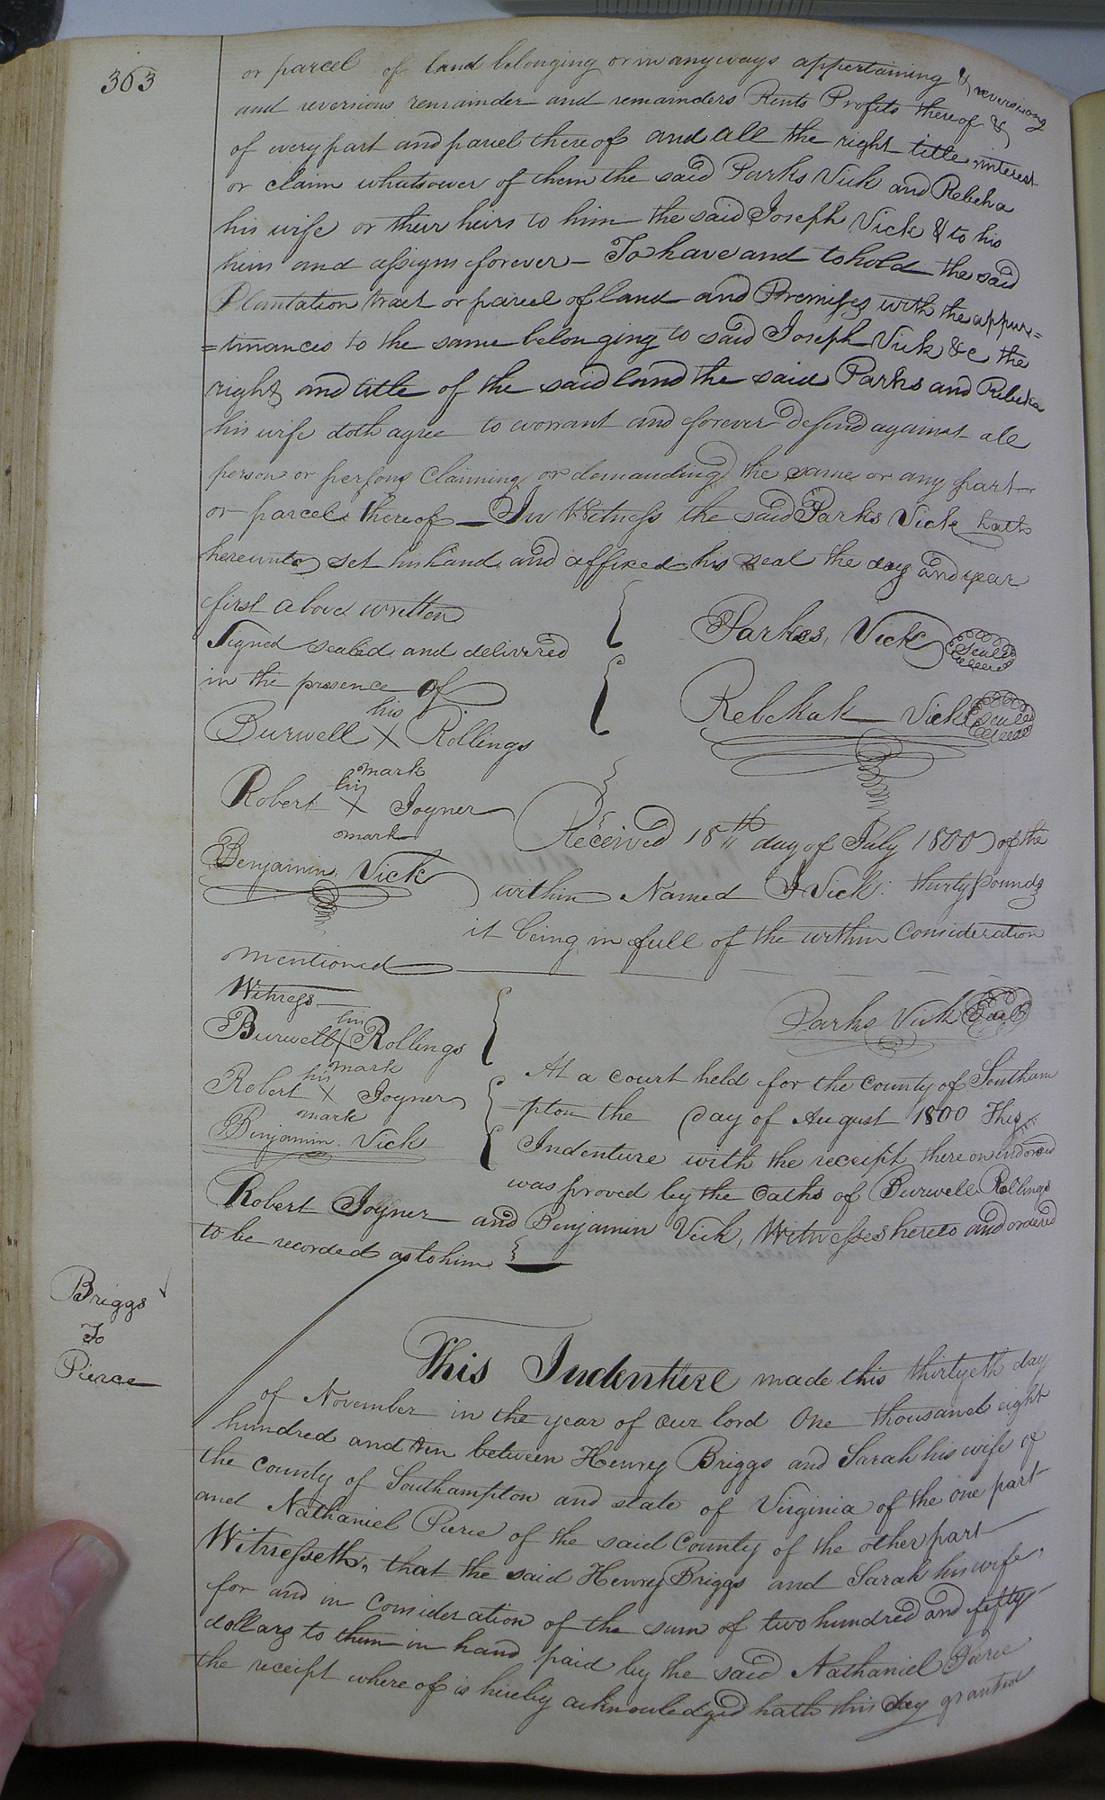 363
or parcel of land belonging or in anyways appertaining & reversions
and reversions remainder and remainders Rents Profits thereof &
of every part and parcel thereof and all the right title interest
or claim whatsoever of them the said Parks Vick and Rebeka
his wife or their heirs to him the said Joseph Vick & to his
heirs and assigns forever — To have and to hold the said
Plantation tract or parcel of land and Premises with the appur=
=tinances to the same belonging to said Joseph Vick &c the
right and title of the said land the said Parks and Rebeka
his wife doth agree to warrant and forever defend against all
person or persons Claiming or demanding the same or any part
or parcel thereof — In Witness the said Parks Vick hath
hereunto set his hand and affixed his seal the day and year
first above written
Signed sealed and delivered
in the presence of
Parkes Vick Seal
Rebekah Vick Seal
his
Burwell X Rollings
mark
his
Robert X Joyner
mark
Benjamin Vick
Received 18th day of July 1800 of the
within Named J Vick thirty pounds
it being in full of the within Consideration
mentioned
Witness
his
Burwell X Rollings
mark
his
Robert X Joyner
mark
Benjamin Vick
Parks Vick Seal
At a court held for the county of Southam
pton the day of August 1800 This
Indenture with the receipt there on indorsed
was proved by the Oaths of Burwell Rollings
Robert Joyner and Benjamin Vick, Witnesses hereto and ordered
to be recorded as to him
Briggs
To
Pierce
This Indenture made this thirtyeth day
of November in the year of our lord One thousand eight
hundred and ten between Henry Briggs and Sarah his wife of
the county of Southampton and state of Virginia of the one part
and Nathaniel Pierce of the said County of the other part
Witnesseth, that the said Henry Briggs and Sarah his wife,
for and in consideration of the sum of two hundred and fifty
dollars to them in hand paid by the said Nathaniel Pierce
the receipt where of is hereby acknowledged hath this day granted